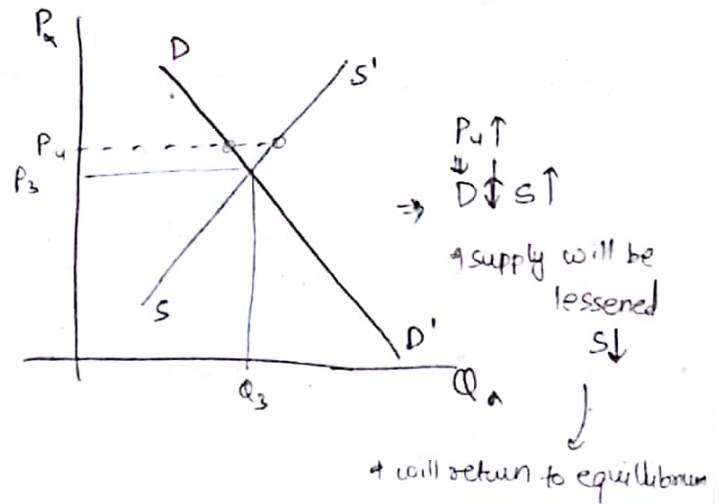 Pₓ
D
S'
P₄
P₃
S
D'
Q₃
Q
P₄↑
↓ ↓
⇒ D↕ S↑
supply will be
lessened
S↓
will return to equillibrium